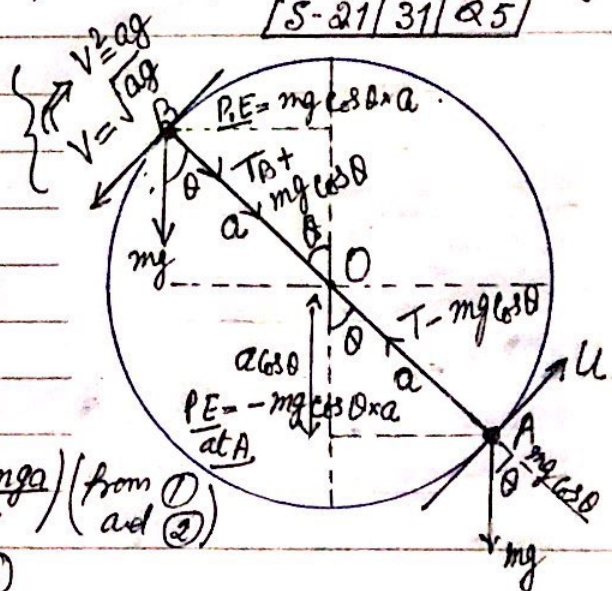 S-21 31 Q5
V²=ag
V=√ag
B
P.E = mg cosθ×a
θ
TB+
mg cosθ
a
θ
mg
O
θ
T- mg cosθ
a cosθ
a
u
PE = -mg cosθ×a
at A
A
mg cosθ
θ
mga) (from ①
and ②)
mg